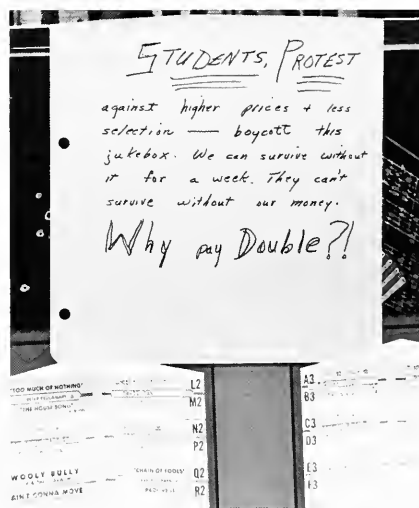 STUDENTS, PROTEST
against higher prices + less
selection — boycott this
jukebox. We can survive without
it for a week. They can't
survive without our money.
Why pay Double?!
"TOO MUCH OF NOTHING"
"THE HOUSE SONG"
WOOLY BULLY
AIN'T GONNA MOVE
"CHAIN OF FOOLS"
L2
M2
N2
P2
Q2
R2
A3
B3
C3
D3
E3
F3